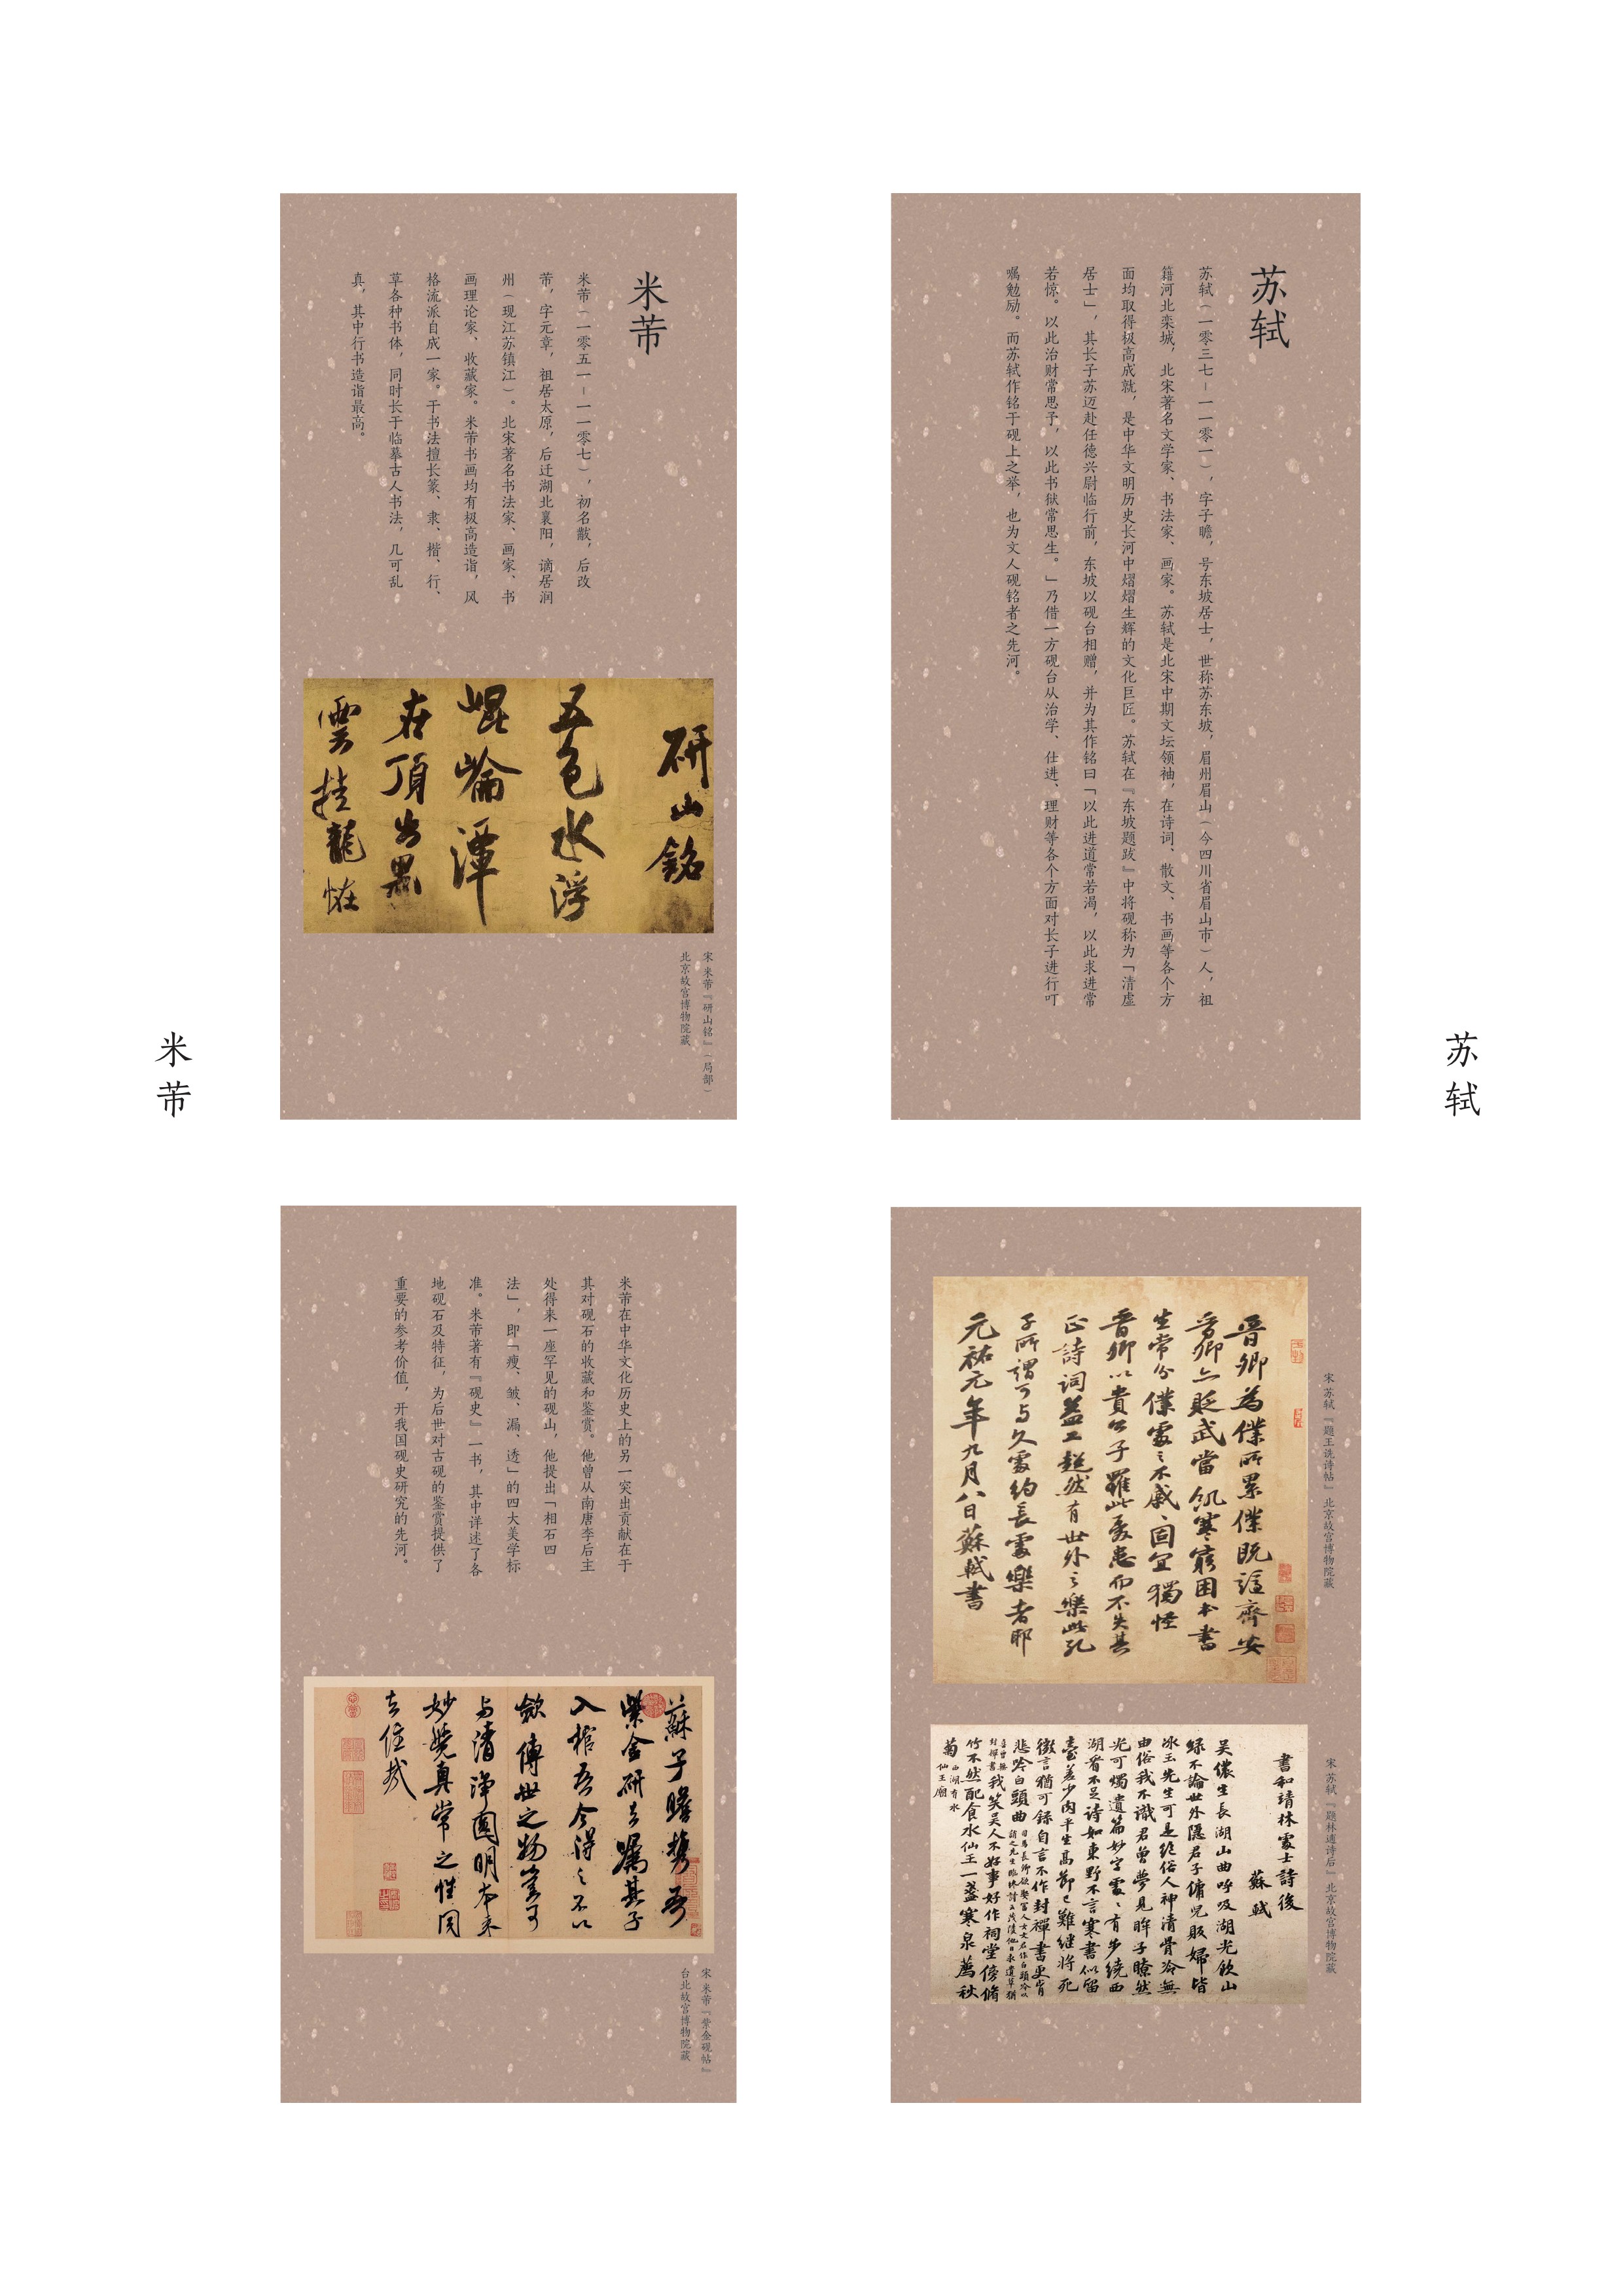 苏轼
苏轼（一零三七－一一零一），字子瞻，号东坡居士，世称苏东坡，眉州眉山（今四川省眉山市）人，祖
籍河北栾城，北宋著名文学家、书法家、画家。苏轼是北宋中期文坛领袖，在诗词、散文、书画等各个方
面均取得极高成就，是中华文明历史长河中熠熠生辉的文化巨匠。苏轼在『东坡题跋』中将砚称为「清虚
居士」，其长子苏迈赴任德兴尉临行前，东坡以砚台相赠，并为其作铭曰「以此进道常若渴，以此求进常
若惊。以此治财常思予，以此书狱常思生。」乃借一方砚台从治学、仕进、理财等各个方面对长子进行叮
嘱勉励。而苏轼作铭于砚上之举，也为文人砚铭者之先河。
苏轼
宋 苏轼『题王诜诗帖』北京故宫博物院藏
晋卿為僕所累僕既謫齊安
晋卿亦貶武當飢寒窮困本書
生常分僕處之不戚戚固宜獨怪
晋卿以貴公子罹此憂患而不失其
正詩詞益工超然有世外之樂此孔
子所謂可与久處約長處樂者耶
元祐元年九月八日蘇軾書
宋 苏轼『题林逋诗后』北京故宫博物院藏
書和靖林處士詩後
蘇軾
吴儂生長湖山曲呼吸湖光飲山
緑不論世外隱君子傭兒販婦皆
冰玉先生可是絶俗人神清骨冷無
由俗我不識君曾夢見眸子瞭然
光可燭遺篇妙字處處有步繞西
湖看不足詩如東野不言寒書似留
臺差少肉平生高節已難繼將死
微言猶可録自言不作封禪書更肯
悲吟白頭曲
我笑吴人不好事好作祠堂傍脩
竹不然配食水仙王一盞寒泉薦秋
菊
西湖有水
仙王廟
米芾
米芾（一零五一－一一零七），初名黻，后改
芾，字元章，祖居太原，后迁湖北襄阳，谪居润
州（现江苏镇江）。北宋著名书法家、画家、书
画理论家、收藏家。米芾书画均有极高造诣，风
格流派自成一家。于书法擅长篆、隶、楷、行、
草各种书体，同时长于临摹古人书法，几可乱
真，其中行书造诣最高。
研山銘
五色水浮
崐崙潭
在頂出黑
雲挂龍恠
宋 米芾『研山铭』（局部）
北京故宫博物院藏
米芾
米芾在中华文化历史上的另一突出贡献在于
其对砚石的收藏和鉴赏。他曾从南唐李后主
处得来一座罕见的砚山，他提出「相石四
法」，即「瘦、皱、漏、透」的四大美学标
准。米芾著有『砚史』一书，其中详述了各
地砚石及特征，为后世对古砚的鉴赏提供了
重要的参考价值，开我国砚史研究的先河。
蘇子瞻携吾
紫金研去嘱其子
入棺吾今得之不以
斂傳世之物豈可
与清浄圓明本来
妙覺真常之性同
去住哉
宋 米芾『紫金砚帖』
台北故宫博物院藏